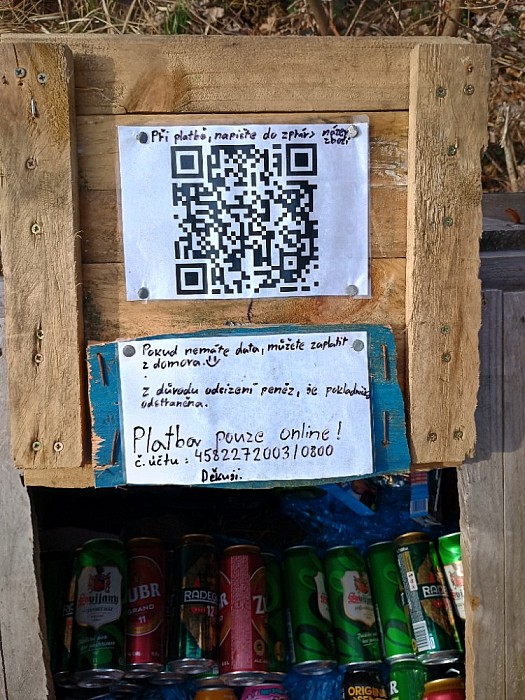 Při platbě, napište do zprávy název
zboží
Pokud nemáte data, můžete zaplatit
z domova.
Z důvodu odcizení peněz, je pokladnička
odstraněna.
Platba pouze online!
č. účtu: 4582272003/0800
Děkuji.
Svijany
UBR
GRAND
11
RADEG
Svijany
Svijany
RADEG
ORIGINAL